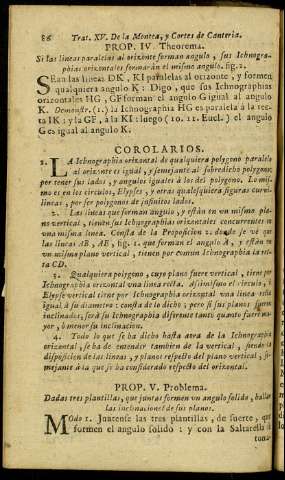 86 Trat. XV. De la Montea, y Cortes de Canteria.
PROP. IV. Theorema.
Si las lineas paralelas al orizonte forman angulo, sus Ichnogra-
phias orizontales formarán el mismo angulo. fig. 2.
SEan las lineas DK, KI paralelas al orizonte, y formen
qualquiera angulo K: Digo, que sus Ichnographias
orizontales HG, GF forman el angulo G igual al angulo
K. Demonstr. (1.) la Ichnographia HG es paralela á la rec-
ta IK; y la GF, á la KI: luego (10. 11. Eucl.) el angulo
G es igual al angulo K.
COROLARIOS.
1. LA Ichnographia orizontal de qualquiera polygono paralelo
al orizonte es igual, y semejante al sobredicho polygono;
por tener sus lados, y angulos iguales à los del polygono. Lo mis-
mo es en los circulos, Elypses, y otras qualesquiera figuras curvi-
lineas, por ser polygonos de infinitos lados.
2. Las lineas que forman angulo, y están en un mismo pla-
no vertical, tienen sus Ichnographias orizontales concurrentes en
una misma linea. Consta de la Proposicion 2. donde se vé que
las lineas AB, AB, fig. 1. que forman el angulo A, y están en
un mismo plano vertical, tienen por comun Ichnographia la rec-
ta CD.
3. Qualquiera polygono, cuyo plano fuere vertical, tiene por
Ichnographia orizontal una linea recta. Assimismo el circulo, ò
Elypse vertical tiene por Ichnographia orizontal una linea recta
igual à su diametro: consta de lo dicho; pero si sus planos fueren
inclinados, será su Ichnographia diferente tanto quanto fuere ma-
yor, ò menor su inclinacion.
4. Todo lo que se ha dicho hasta aora de la Ichnographia
orizontal, se ha de entender tambien de la vertical, siendo la
disposicion de las lineas, y planos respecto del plano vertical, se-
mejante à la que se ha considerado respecto del orizontal.
PROP. V. Problema.
Dadas tres plantillas, que juntas formen un angulo solido, hallar
las inclinaciones de sus planos.
MOdo 1. Juntense las tres plantillas, de suerte, que
formen el angulo solido: y con la Saltarella
toma-